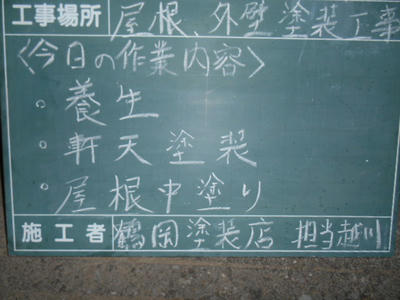 工事場所 屋根、外壁塗装工事
〈今日の作業内容〉
。養生
。軒天塗装
。屋根中塗り
施工者 鶴岡塗装店 担当越川